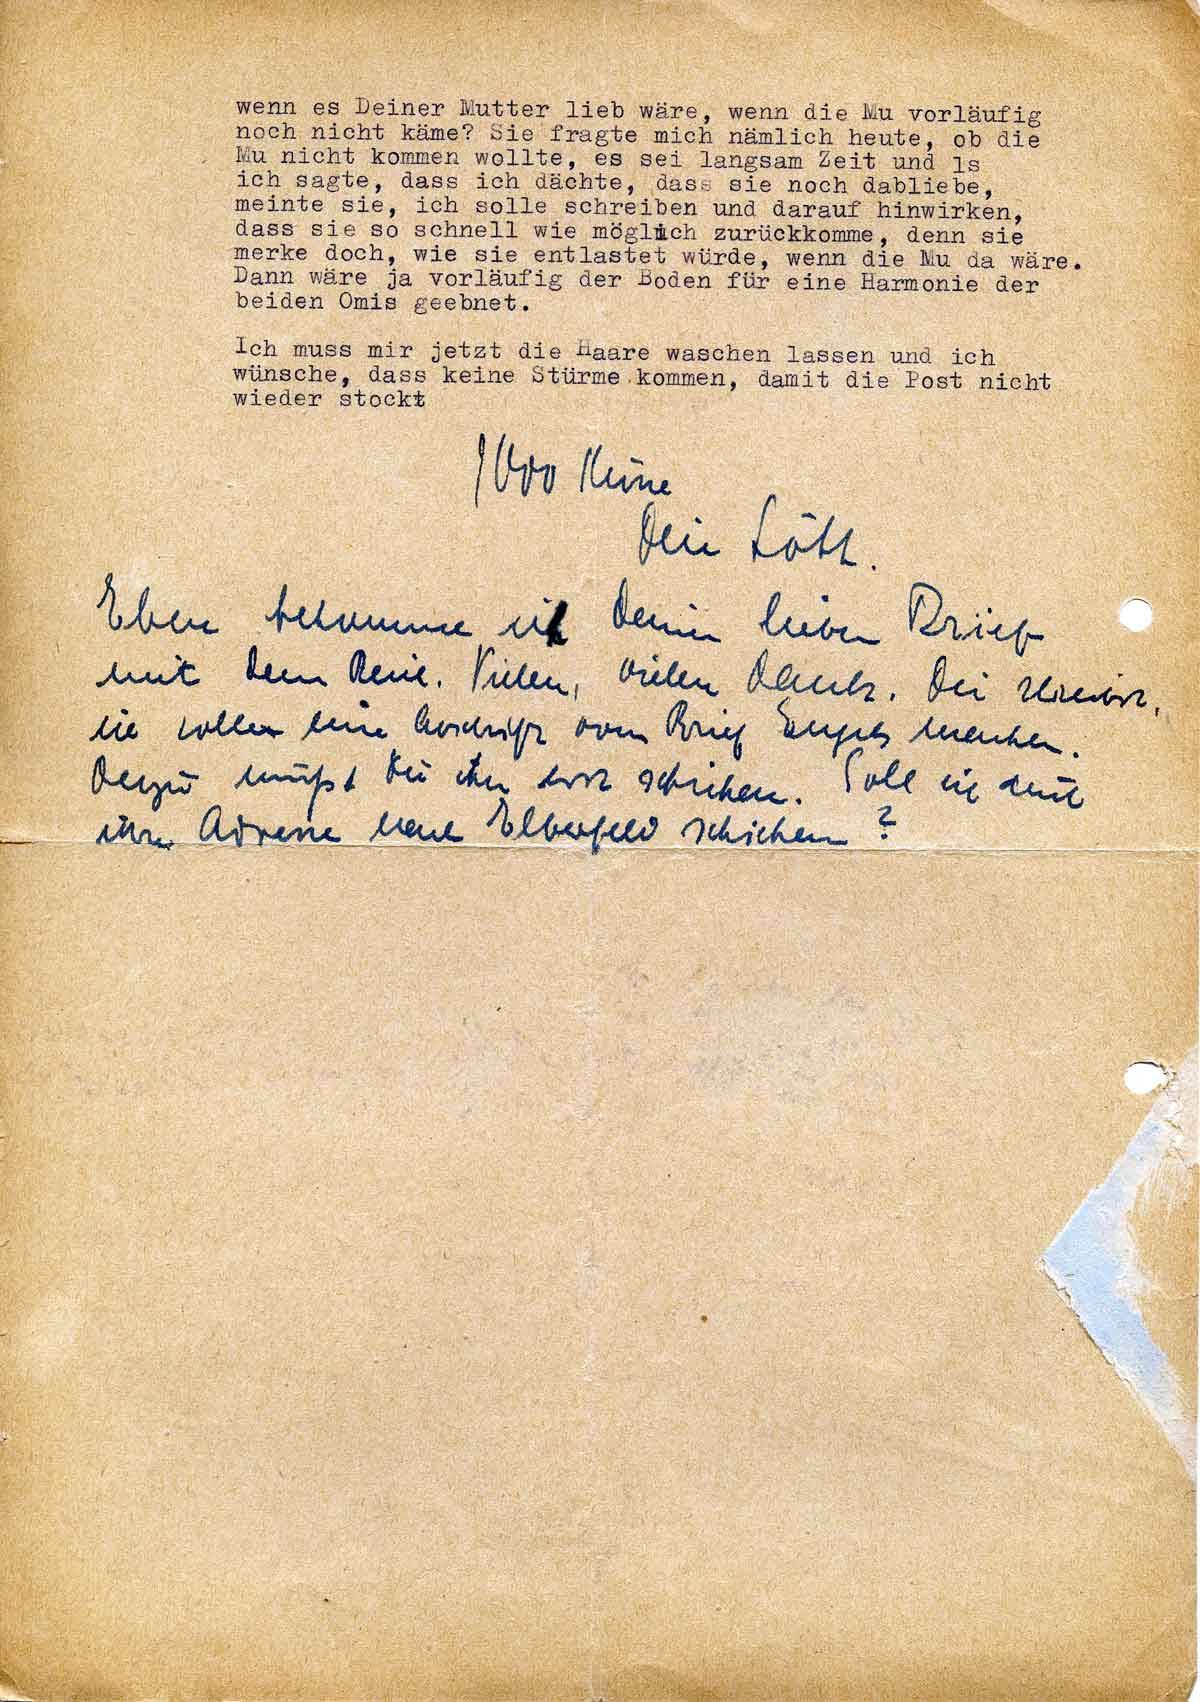 wenn es Deiner Mutter lieb wäre, wenn die Mu vorläufig
noch nicht käme? Sie fragte mich nämlich heute, ob die
Mu nicht kommen wollte, es sei langsam Zeit und ls
ich sagte, dass ich dächte, dass sie noch dabliebe,
meinte sie, ich solle schreiben und darauf hinwirken,
dass sie so schnell wie möglich zurückkomme, denn sie
merke doch, wie sie entlastet würde, wenn die Mu da wäre.
Dann wäre ja vorläufig der Boden für eine Harmonie der
beiden Omis geebnet.
Ich muss mir jetzt die Haare waschen lassen und ich
wünsche, dass keine Stürme kommen, damit die Post nicht
wieder stockt
1000 Küsse
Dein Lött.
Eben bekomme ich Deinen lieben Brief
mit dem Reis. Vielen, vielen Dank. Du schreibst,
ich solle eine Abschrift vom Brief Engels machen.
Dazu mußt Du ihn erst schicken. Soll ich auch
ihre Adresse nach Elberfeld schicken?